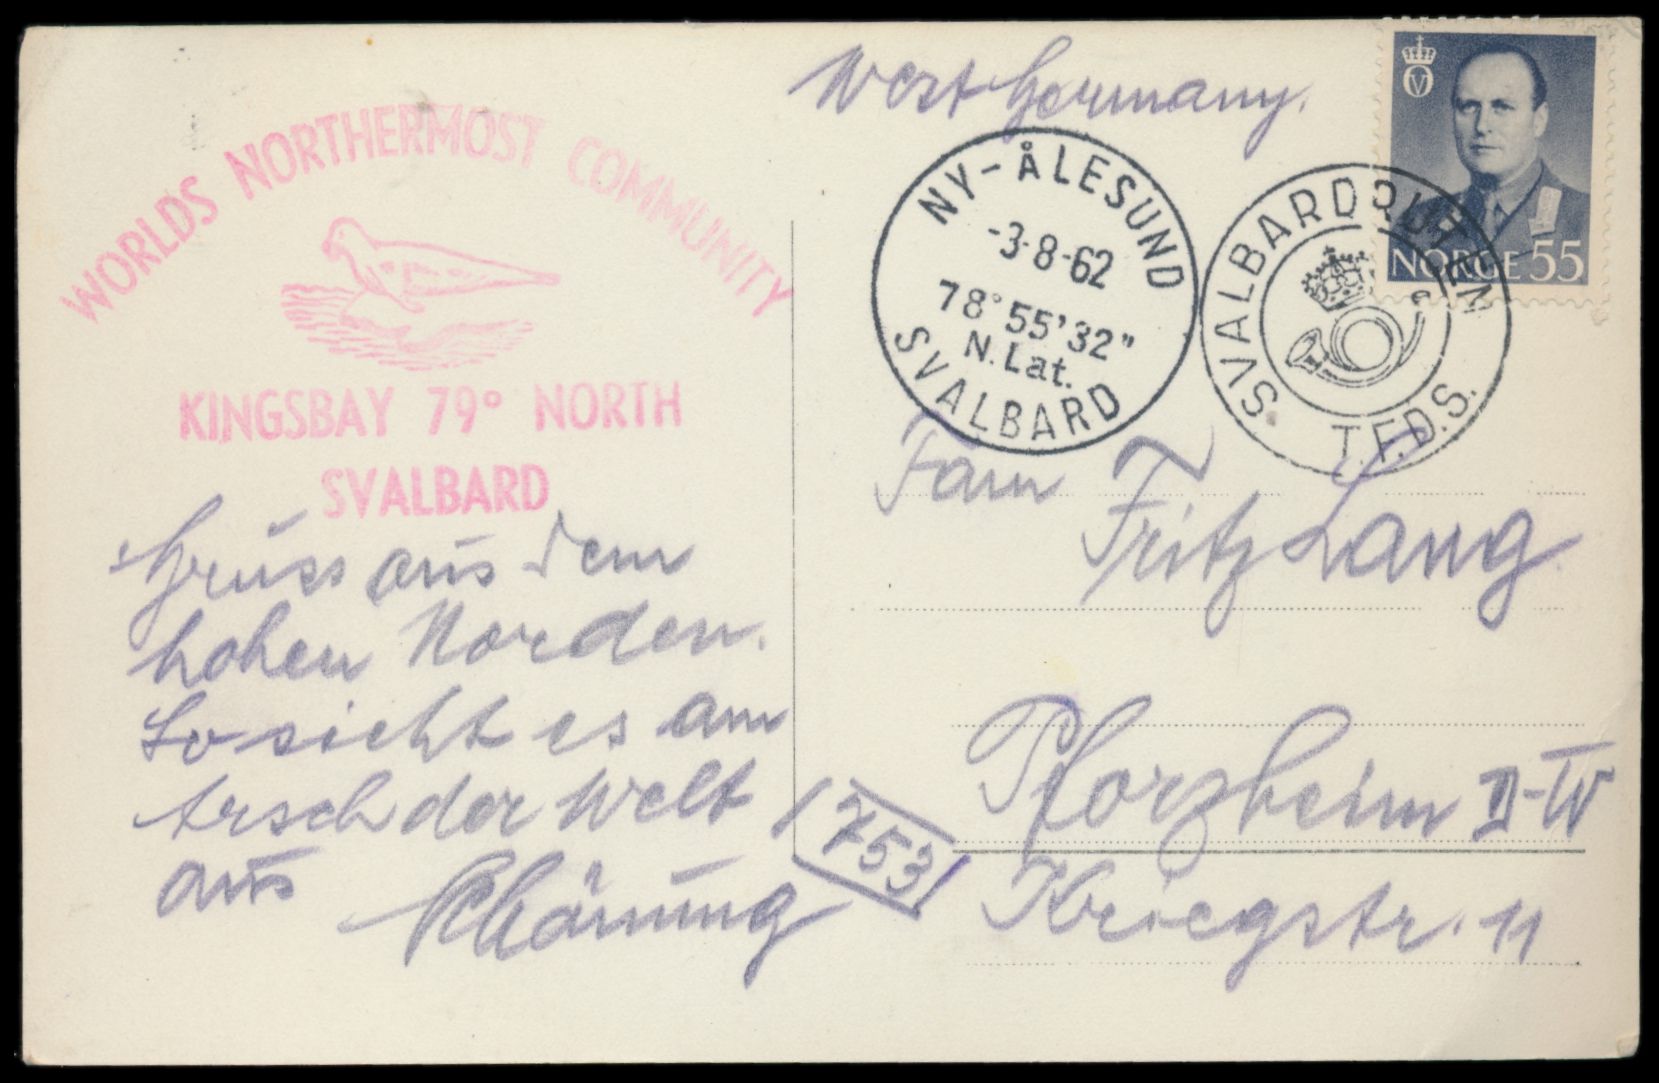 WORLDS NORTHERMOST COMMUNITY
KINGSBAY 79° NORTH
SVALBARD
Gruss aus dem
hohen Norden.
So sieht es am
Arsch der Welt
aus
West Germany.
NY-ÅLESUND
-3-8-62
78°55'32"
N.Lat.
SVALBARD
SVALBARDRUTEN
T.F.D.S.
V
NORGE 55
Fam
Fritz Lang
Pforzheim D-W
Kriegstr. 11
753